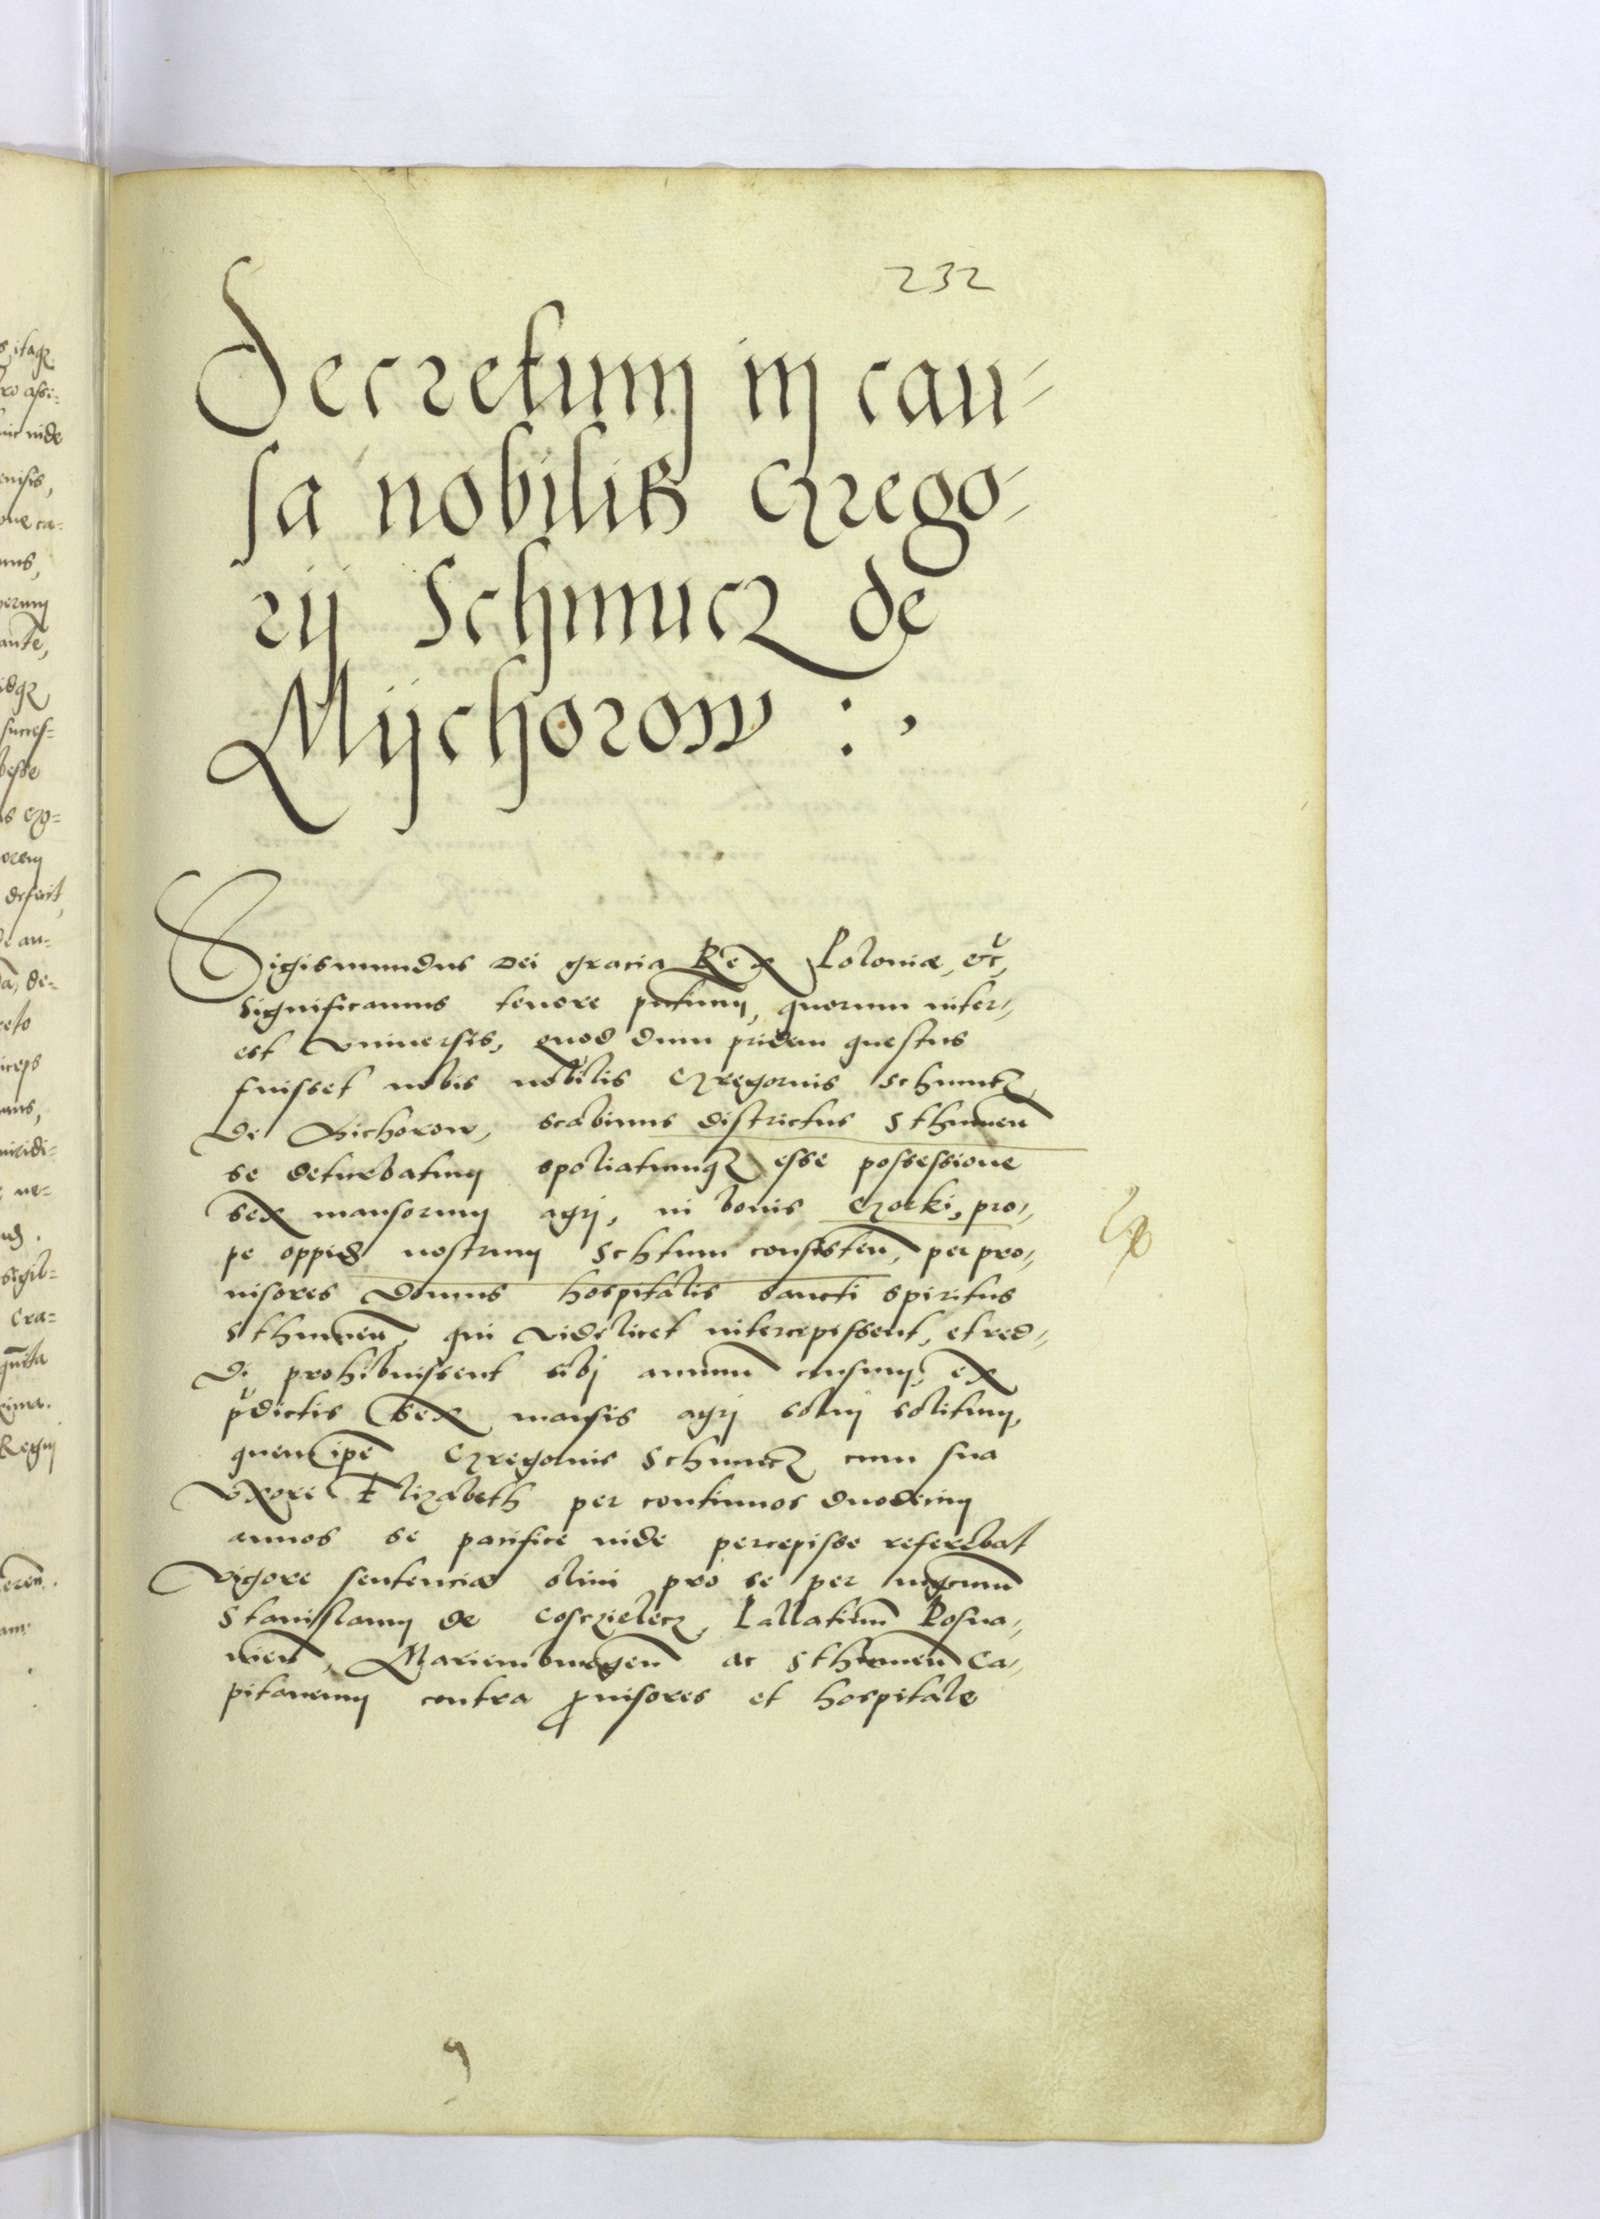 232
Decretum in cau-
sa nobilis Grego-
rij Schmucz de
Mijchorow :,
Sigismundus Dei gracia Rex Poloniæ, etc,
Significamus tenore pntium, quorum inter-,
est vniuersis, quod dum pridem questus
fuisset nobis nobilis Gregorius Schmucz,
De Michorow, scabinus districtus Sthumen
se deturbatum spoliatumqz esse possessione
sex mansorum agrj, in bonis Gorki, pro-,
pe oppid nostrum Schtum consisten, per pro-,
uisores Domus hospitalis sancti spiritus
Sthumen, qui videlicet intercepissent, et red-,
Di prohibuissent sibj annuum censum, ex
pdictis sex mansis agrj solui solitum,
quem ipe Gregorius Schmucz cum sua
Vxore Elizabeth per continuos duodecim
annos se pacifice inde percepisse referebat
Vigore sentenciæ olim pro se per mgcum
Stanislaum de Cosczielecz, Pallatinum Posna-,
nien, Marienburgen ac Sthumen Ca-,
pitaneum contra prouisores et hospitale